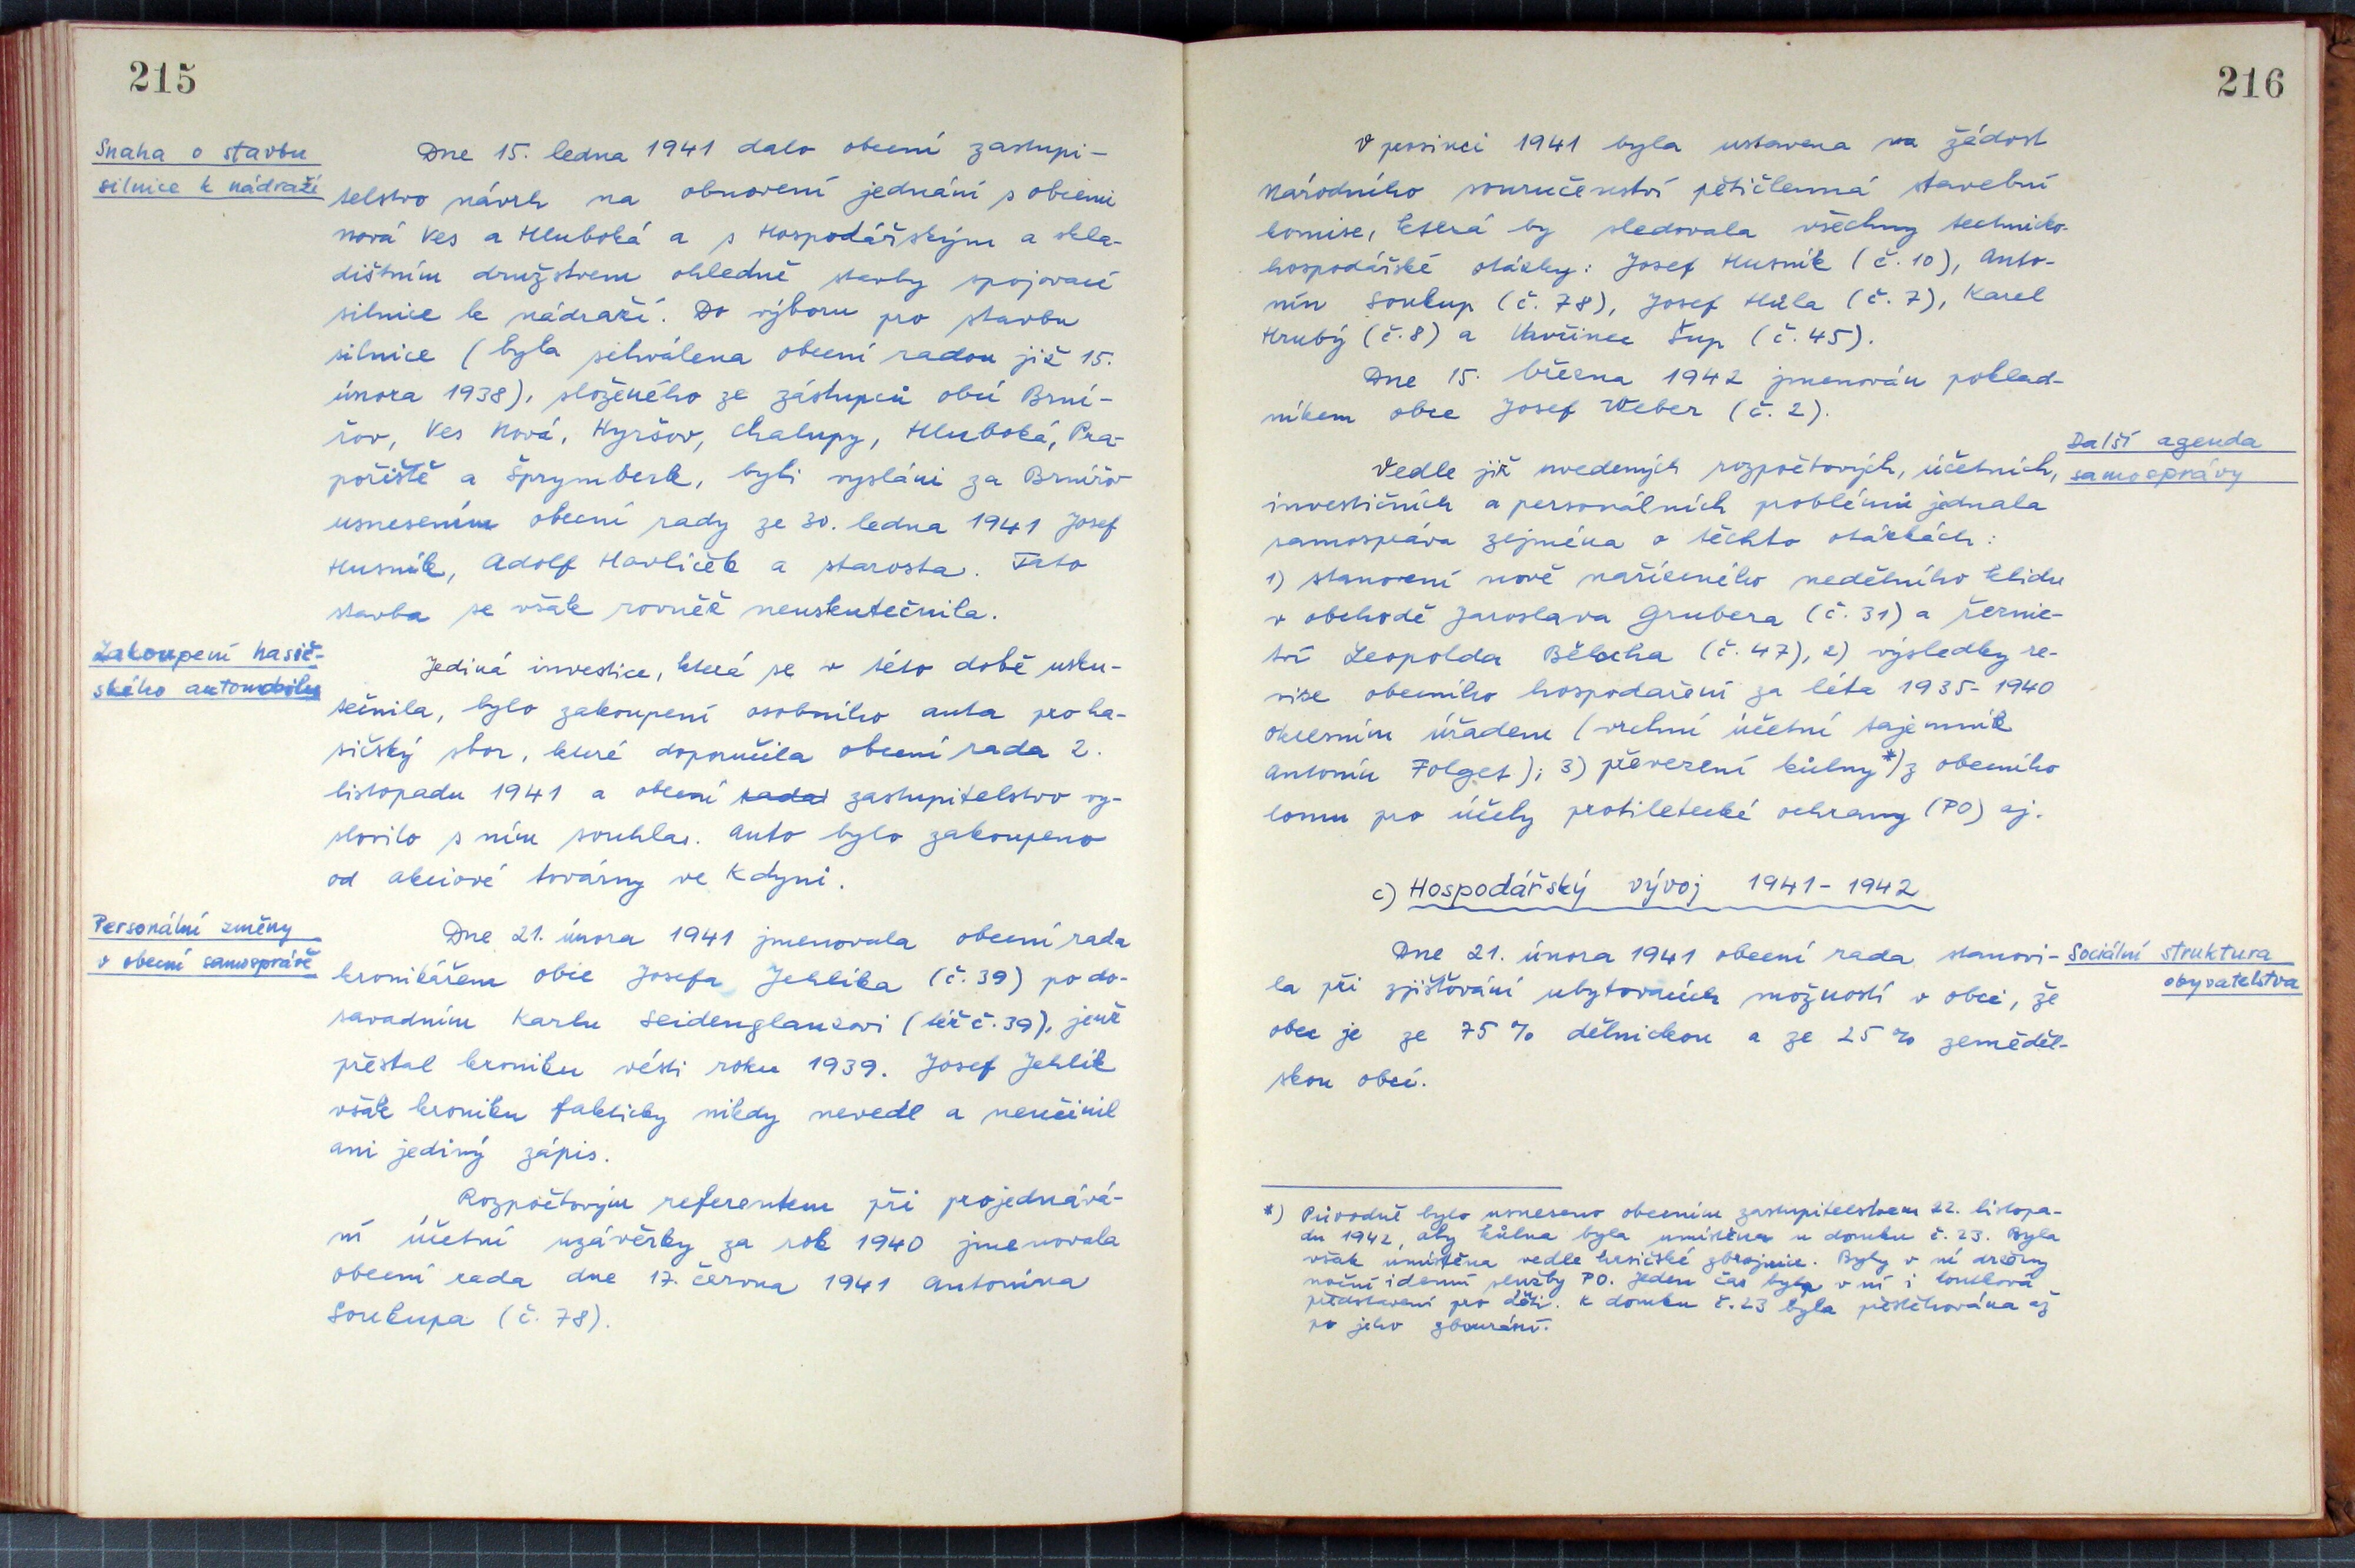 215
Snaha o stavbu
silnice k nádraží
Dne 15. ledna 1941 dalo obecní zastupi-
telstvo návrh na obnovení jednání s obcemi
Nová Ves a Hluboká a s Hospodářským a skla-
dištním družstvem ohledně stavby spojovací
silnice k nádraží. Do výboru pro stavbu
silnice (byla schválena obecní radou již 15.
února 1938), složeného ze zástupců obcí Brní-
řov, Ves Nová, Hyršov, Chalupy, Hluboká, Pra-
pořiště a Šprymberk, byli vysláni za Brnířov
usnesením obecní rady ze 30. ledna 1941 Josef
Husník, Adolf Havlíček a starosta. Tato
stavba se však rovněž neuskutečnila.
Zakoupení hasič-
ského automobilu
Jediná investice, která se v této době usku-
tečnila, bylo zakoupení osobního auta pro ha-
sičský sbor, které doporučila obecní rada 2.
listopadu 1941 a obecní rada zastupitelstvo vy-
slovilo s ním souhlas. Auto bylo zakoupeno
od akciové továrny ve Kdyni.
Personální změny
v obecní samosprávě
Dne 21. února 1941 jmenovala obecní rada
kronikářem obce Josefa Jehlíka (č. 39) po do-
savadním Karlu Seidenglanzovi (též č. 39), jenž
přestal kroniku vésti roku 1939. Josef Jehlík
však kroniku fakticky nikdy nevedl a neučinil
ani jediný zápis.
Rozpočtovým referentem při projednává-
ní účetní uzávěrky za rok 1940 jmenovala
obecní rada dne 17. června 1941 Antonína
Soukupa (č. 78).
216
V prosinci 1941 byla ustavena na žádost
Národního souručenství pětičlenná stavební
komise, která by sledovala všechny technicko-
hospodářské otázky: Josef Husník (č. 10), Anto-
nín Soukup (č. 78), Josef Hůla (č. 7), Karel
Hrubý (č. 8) a Vavřinec Šup (č. 45).
Dne 15. března 1942 jmenován poklad-
níkem obce Josef Weber (č. 2).
Další agenda
samosprávy
Vedle již uvedených rozpočtových, účetních,
investičních a personálních problémů jednala
samospráva zejména o těchto otázkách:
1) stanovení nově nařízeného nedělního klidu
v obchodě Jaroslava Grubera (č. 31) a řeznic-
tví Leopolda Bělocha (č. 47), 2) výsledky re-
vize obecního hospodaření za léta 1935-1940
okresním úřadem (vrchní účetní tajemník
Antonín Folget); 3) převezení kůlny*) z obecního
lomu pro účely protiletecké ochrany (PO) aj.
c) Hospodářský vývoj 1941-1942
Sociální struktura
obyvatelstva
Dne 21. února 1941 obecní rada stanovi-
la při zjišťování ubytovacích možností v obci, že
obec je ze 75 % dělnickou a ze 25 % zeměděl-
skou obcí.
*) Původně bylo usneseno obecním zastupitelstvem 22. listopa-
du 1942, aby kůlna byla umístěna u domku č. 23. Byla
však umístěna vedle hasičské zbrojnice. Byly v ní držány
noční i denní služby PO. Jeden čas byla v ní i loutková
představení pro děti. K domku č. 23 byla přestěhována až
po jeho zbourání.